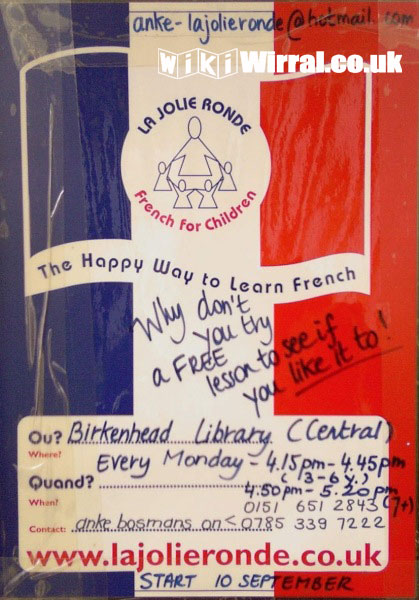 anke-lajolieronde@hotmail.com
wikiWirral.co.uk
LA JOLIE RONDE
French for Children
The Happy Way to Learn French
Why don't
you try
a FREE
lesson to see if
you like it to!
Ou? Birkenhead Library (Central)
Where?
Every Monday - 4.15pm - 4.45pm
(3-6 y.)
Quand?
4.50pm - 5.20pm
(7+)
When?
0151 651 2843
Contact: anke bosmans on < 0785 339 7222
www.lajolieronde.co.uk
START 10 SEPTEMBER